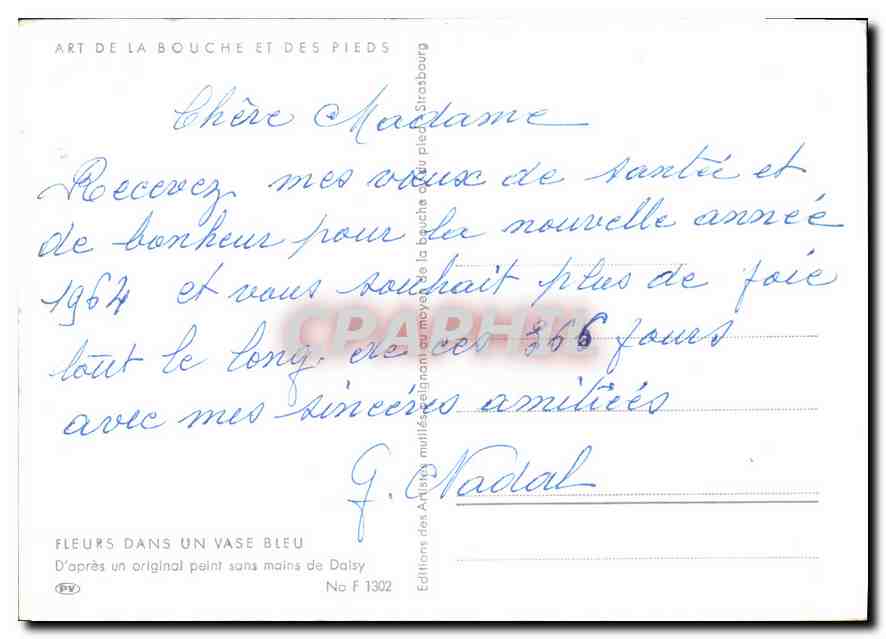 ART DE LA BOUCHE ET DES PIEDS
Chère Madame
Recevez mes vœux de santée et
de bonheur pour la nouvelle année
1964 et vous souhait plus de joie
tout le long de ces 366 jours
avec mes sincéres amitiées
G. Nadal
FLEURS DANS UN VASE BLEU
D'après un original peint sans mains de Daisy
PV No F 1302
Editions des Artistes mutilés peignant au moyen de la bouche ou du pied, Strasbourg
CPAPHIL